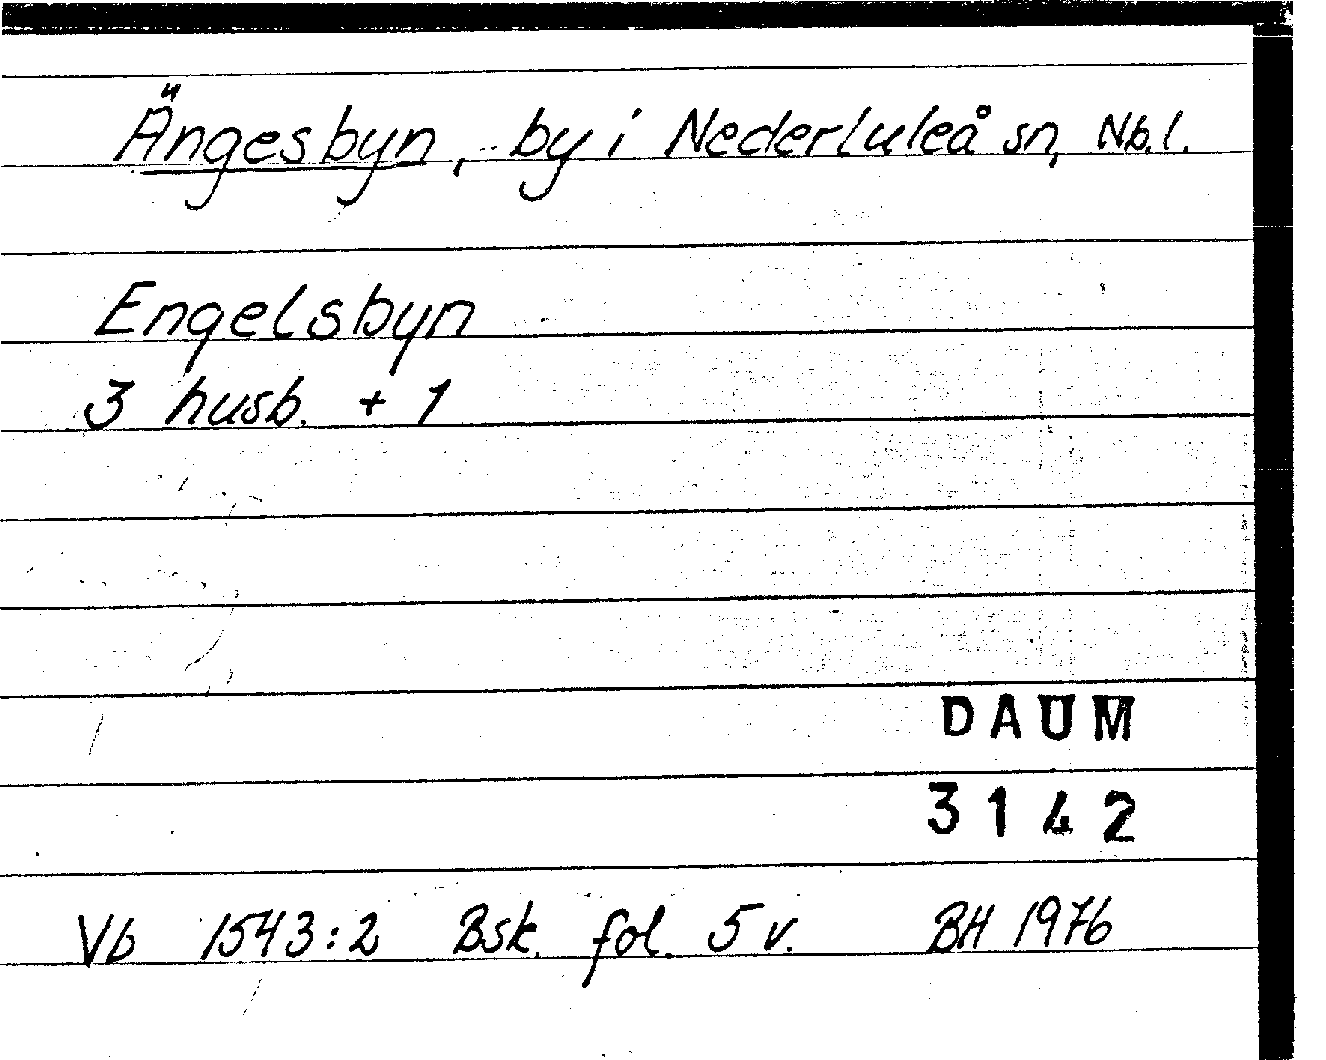 Ängesbyn, by i Nederluleå sn, Nb.l.
Engelsbyn
3 husb. + 1
DAUM
3142
Vb 1543:2 Bsk. fol. 5 v. BH 1976